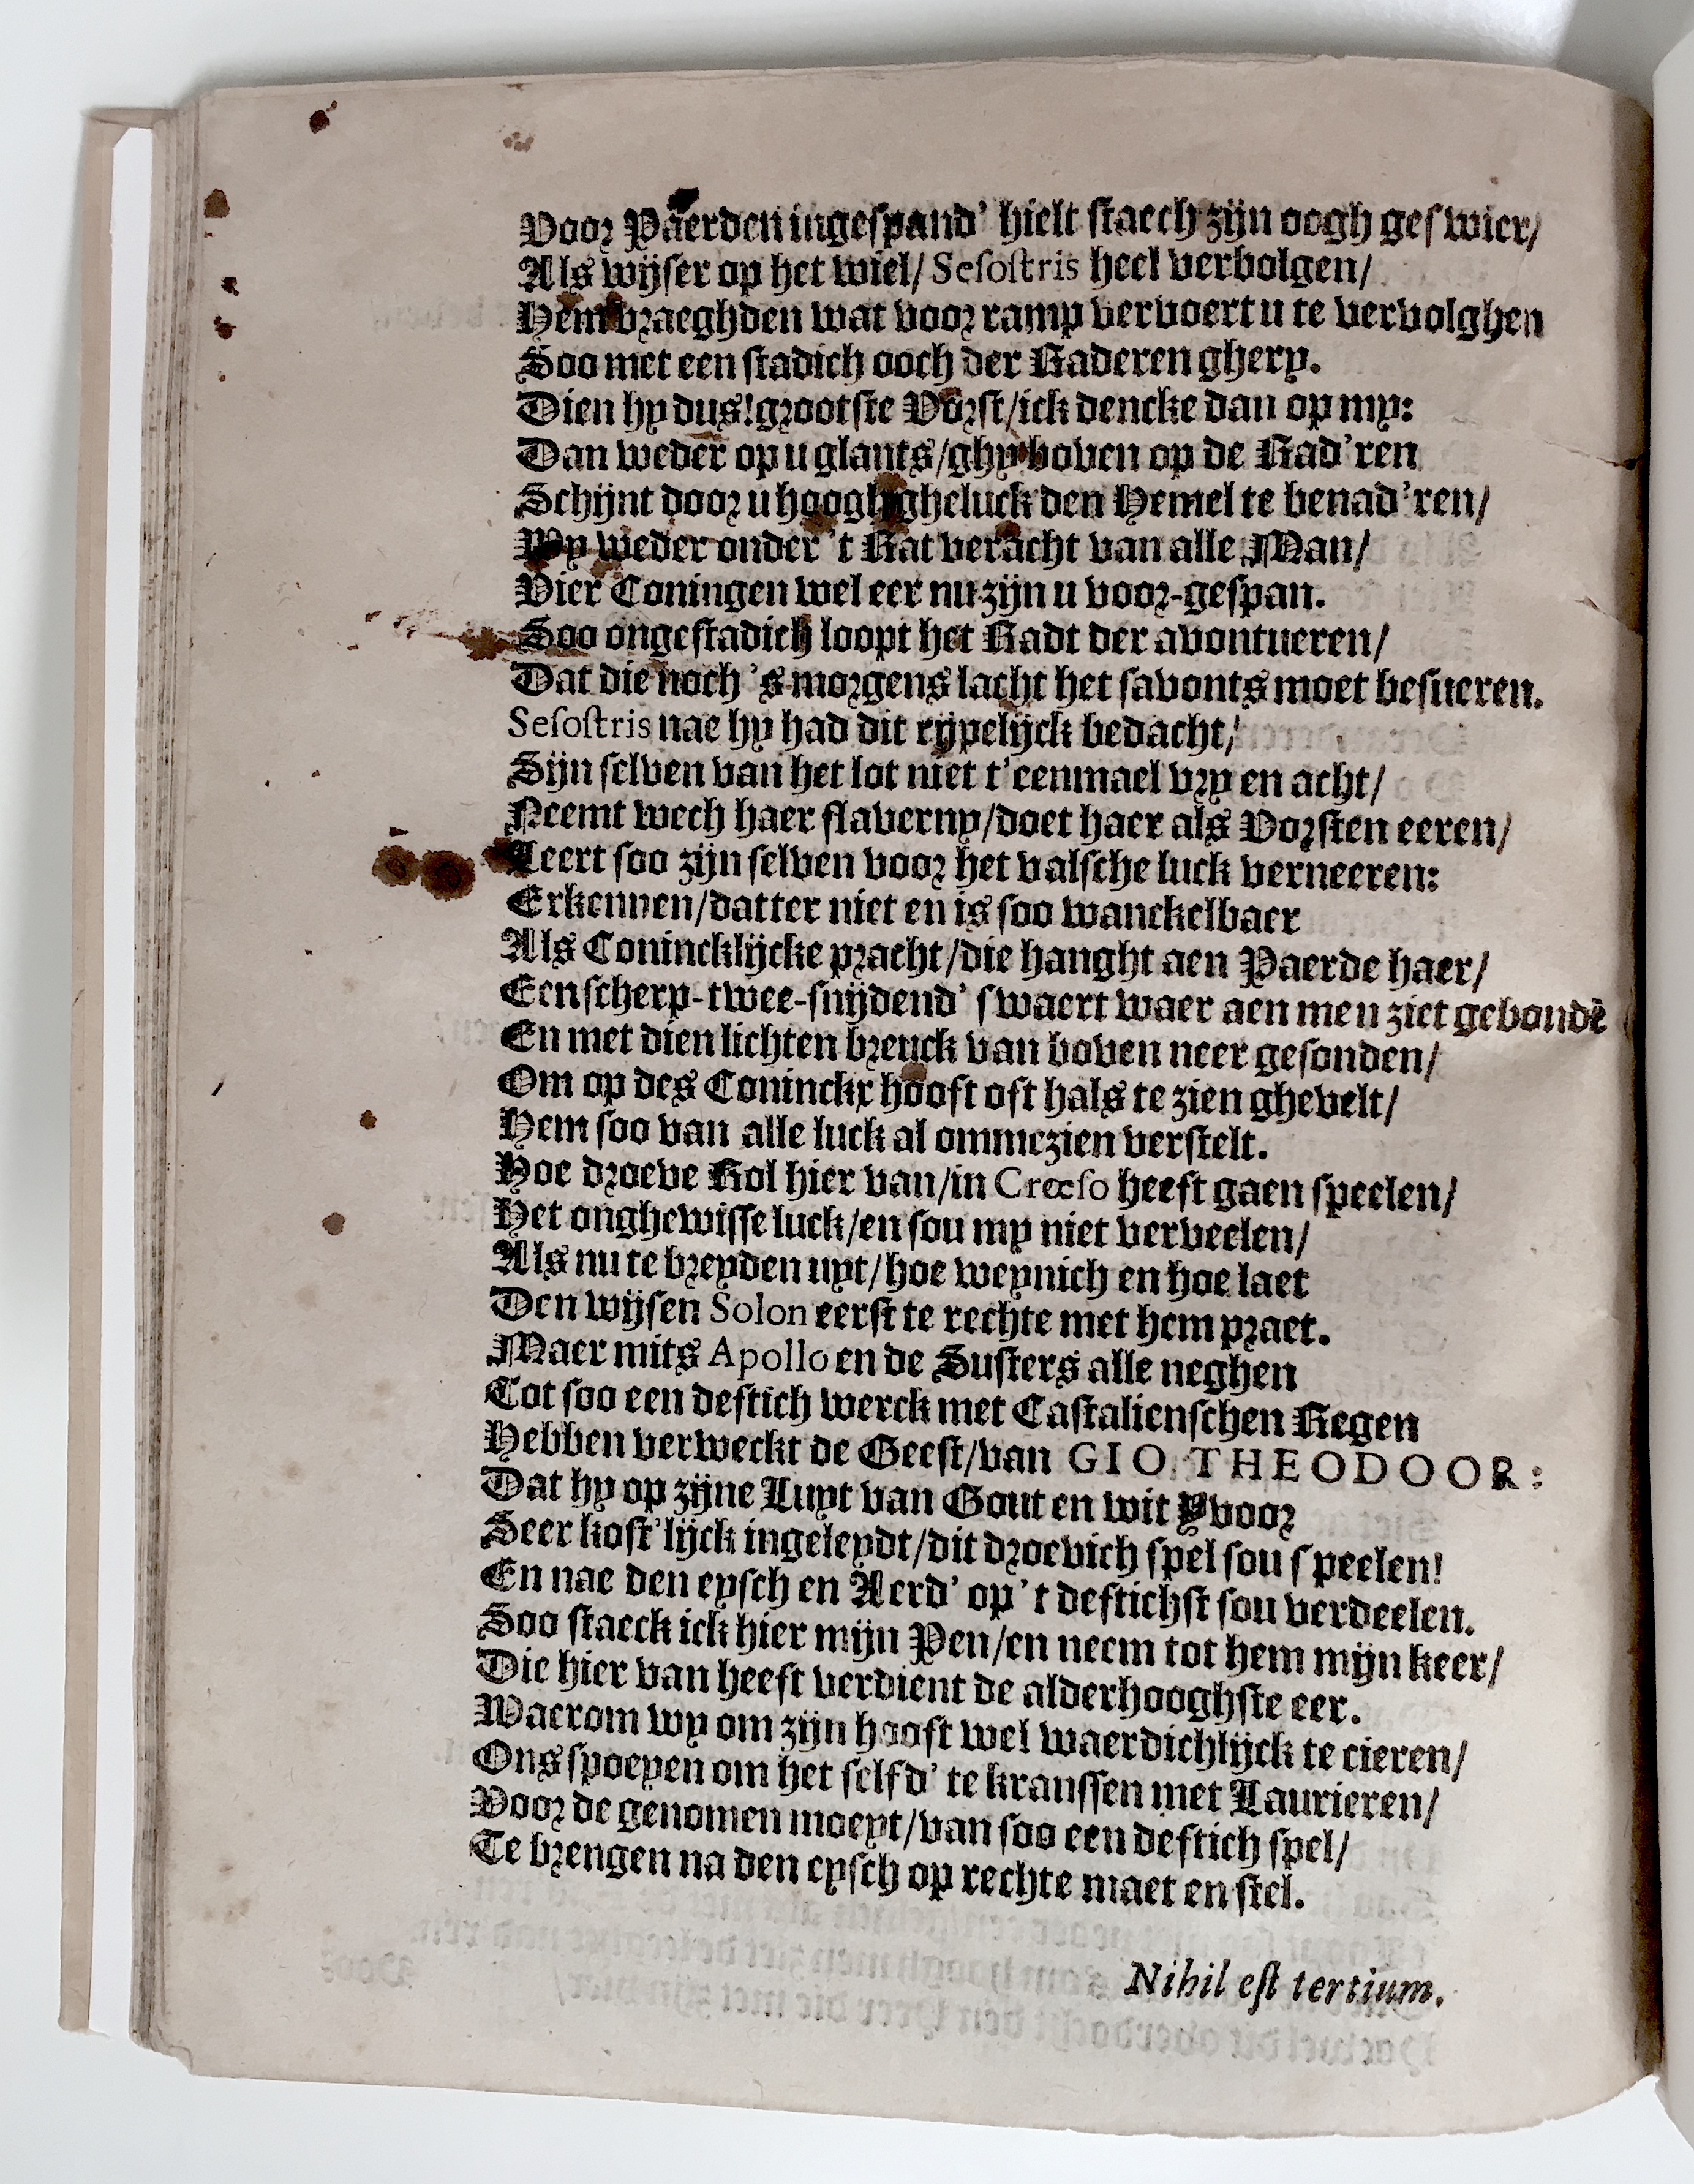 Voor Paerden ingespand' hielt staech zijn oogh geswier/
Als wijser op het wiel/ Sesostris heel verbolgen/
Hem vraeghden wat voor ramp vervoert u te vervolghen
Soo met een stadich ooch der Raderen ghery.
Dien hy dus! grootste Vorst/ick dencke dan op my:
Dan weder op u glants/ghy boven op de Rad'ren
Schijnt door u hoogh gheluck den Hemel te benad'ren/
Wy weder onder 't Rat veracht van alle Man/
Vier Coningen wel eer nu zijn u voor-gespan.
Soo ongestadich loopt het Radt der avontueren/
Dat die noch 's morgens lacht het savonts moet besueren.
Sesostris nae hy had dit rijpelijck bedacht/
Sijn selven van het lot niet t'eenmael vry en acht/
Neemt wech haer slaverny/doet haer als Vorsten eeren/
Leert soo zijn selven voor het valsche luck verneeren:
Erkennen/datter niet en is soo wanckelbaer
Als Conincklijcke pracht/die hanght aen Paerde haer/
Een scherp-twee-snijdend' swaert waer aen men ziet gebondē
En met dien lichten breuck van boven neer gesonden/
Om op des Coninckx hooft oft hals te zien ghevelt/
Hem soo van alle luck al ommezien verstelt.
Hoe droeve Rol hier van/in Crœso heeft gaen speelen/
Het onghewisse luck/en sou my niet verveelen/
Als nu te breyden uyt/hoe weynich en hoe laet
Den wijsen Solon eerst te rechte met hem praet.
Maer mits Apollo en de Susters alle neghen
Tot soo een deftich werck met Castalienschen Regen
Hebben verweckt de Geest/van GIO THEODOOR:
Dat hy op zijne Luyt van Gout en wit Yvoor
Seer kost'lijck ingeleydt/dit droevich spel sou speelen!
En nae den eysch en Aerd' op 't deftichst sou verdeelen.
Soo staeck ick hier mijn Pen/en neem tot hem mijn keer/
Die hier van heeft verdient de alderhooghste eer.
Waerom wy om zijn hooft wel waerdichlijck te cieren/
Ons spoeyen om het selfd' te kranssen met Laurieren/
Voor de genomen moeyt/van soo een deftich spel/
Te brengen na den eysch op rechte maet en stel.
Nihil est tertium.